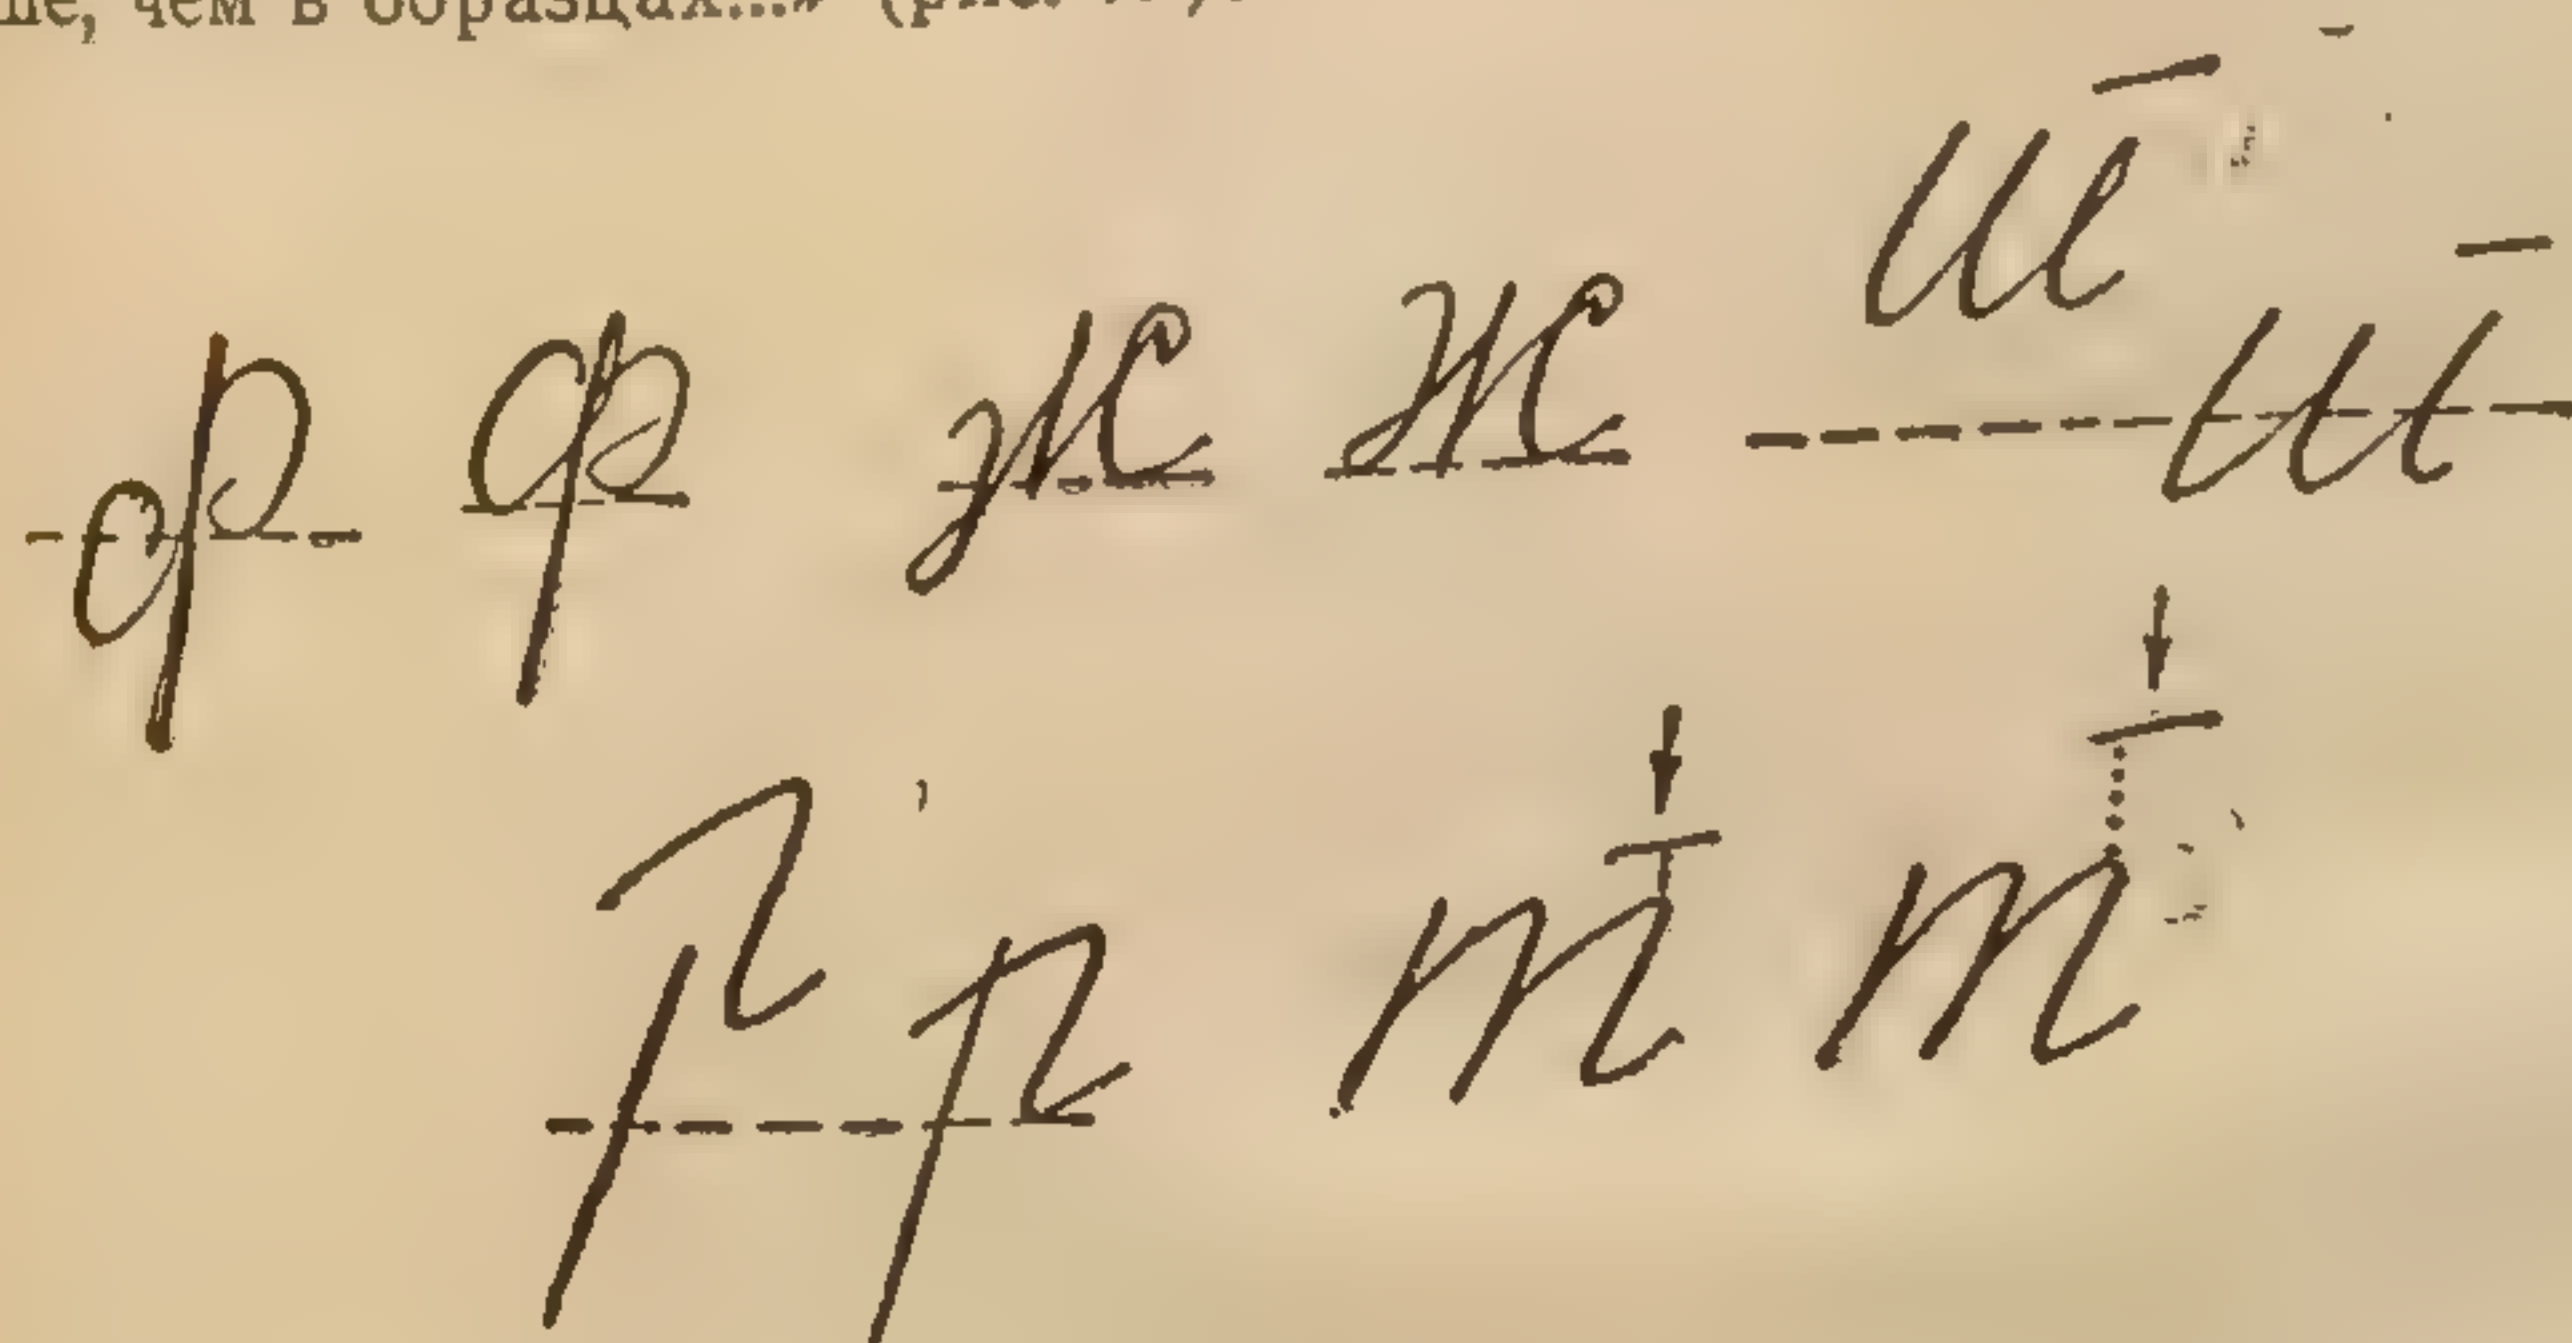 чем в образцах...» (рис.
ф ф ж ж ш ш
р р т т